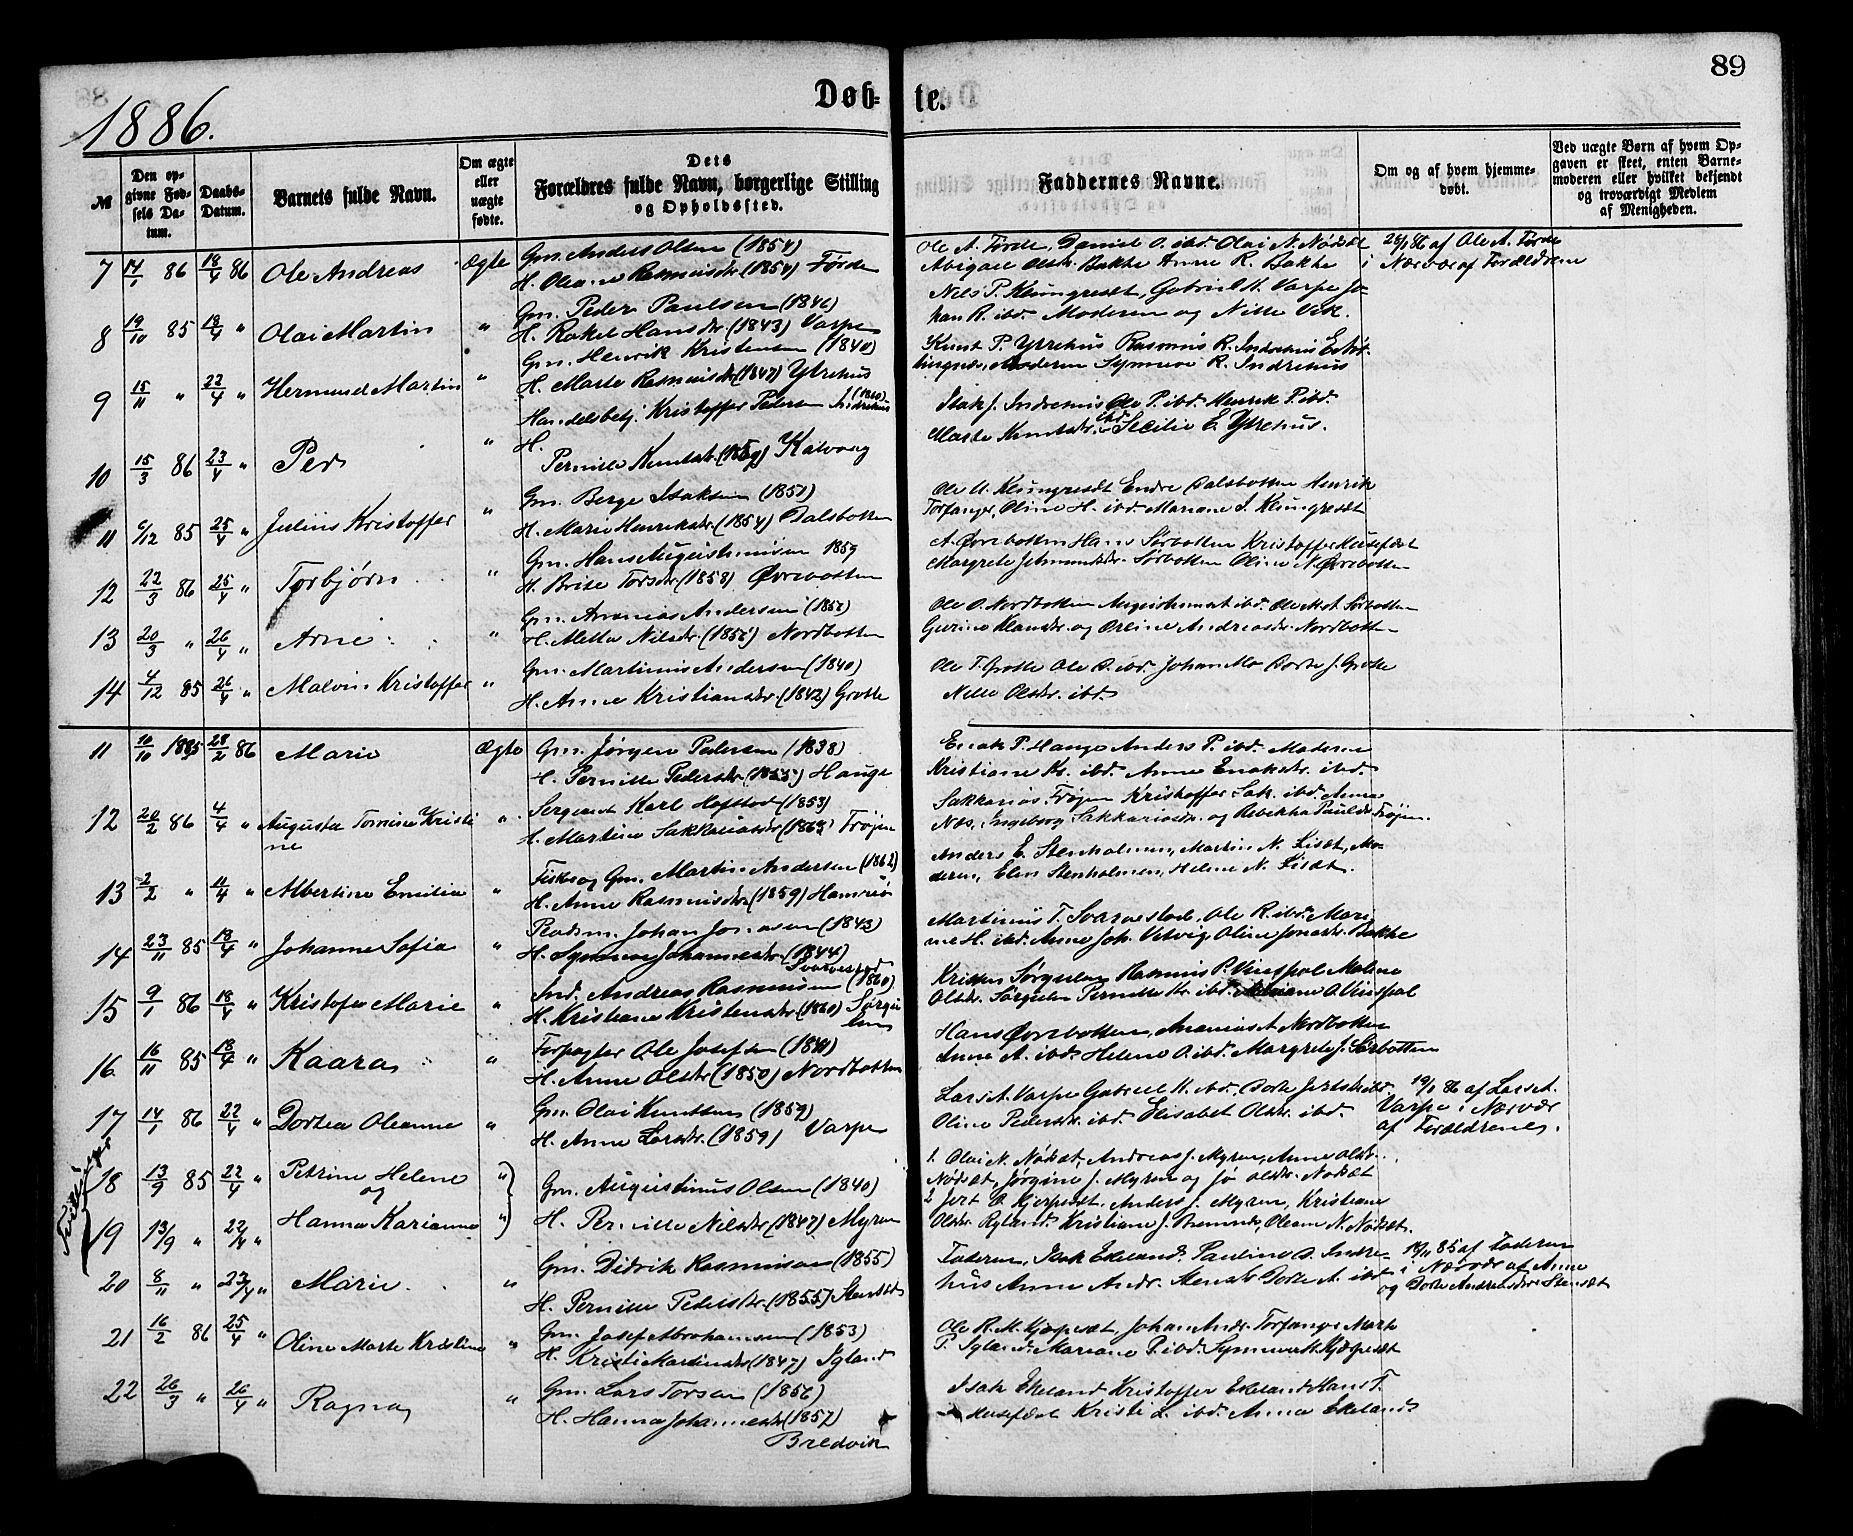 89
1886.
Døb= te.
№
Den op-
givne Fød-
sels Da-
tum.
Daabs-
Datum.
Barnets fulde Navn.
Om ægte
eller
uægte
fødte.
Dets
Forældres fulde Navn, borgerlige Stilling
og Opholdssted.
Faddernes Navne.
Om og af hvem hjemme-
døbt.
Ved uægte Børn af hvem Op-
gaven er skeet, enten Barne-
moderen eller hvilket bekjendt
og troværdigt Medlem
af Menigheden.
7 14/1 86 18/4 86 Ole Andreas Ægte Gm. Anders Olsen (1854)
H. Oleane Rasmusdtr (1854) Førde
Ole A. Førde, Daniel O. ibd. Olai N. Nødset
Abigael Olsdtr. Bakke Anne R. Bakke
28/1 86 af Ole A. Førde
i Nærvær af Forældrene
8 19/10 85 18/4 " Olai Martin " Gm. Peder Paulsen (1846)
H. Rakel Hansdtr (1843) Varpe
Nils P. Klungresæt, Gabriel H. Varpe Jo-
han R. ibd. Moderen og Nille Vik.
9 15/11 " 22/4 " Hermund Martin " Gm. Henrik Kristensen (1840)
H. Marte Rasmusdtr (1847) Ytrehus
Knut P. Ytrehus Rasmus R. Indrehus
Moderen Synneve R. Indrehus
10 15/3 86 23/4 " Per " Handelsbetj. Kristoffer Pedersen Indrehus (1860)
H.
Pernille Knutsdtr. Kalvaag
Isak J. Indrehus Ole P. ibd. Henrik P. ibd.
Marte Knutsdtr. ibd. Secilie E. Ytrehus.
11 6/12 85 25/4 " Julius Kristoffer " Gm. Berge Isaksen (1851)
H. Marie Henriksdtr. (1854) Dalsbotten
Ole U. Klungresæt Endre Dalsbotten Henrik
Torfanger, Oline H. ibd. Mariane I. Klungresæt
12 22/3 86 25/4 " Torbjørn " Gm. Hans Augustinusen 1859
H. Brite Torsdtr. (1858) Øvrebotten
A. Øvrebotten Hans Sørbotten Kristoffer Husefæt
Margrete Johannesdtr. Sørbotten Oline N. Øvrebotten
13 20/3 " 26/4 " Arne " Gm. Ananias Andersen
H. Mette Nilsdtr. (1856) Nordbotten
Ole O. Nordbotten Augustinus ibd. Ole A. Sørbotten
Gurine Hansdtr. og Oline Andreasdtr. Nordbotten
14 4/12 85 26/4 " Malvin Kristoffer " Gm. Martinus Andersen (1840)
H. Anne Kristiansdtr. (1842) Grotle
Ole T. Grotle Ole O. ibd. Johan Mo Dorte J. Grotle
Nille Olsdtr. ibd.
11 10/10 1885 28/2 86 Marie Ægte Gm. Jørgen Pedersen (1838)
H. Pernille Pedersdtr. (1855) Hauge
Enok P. Hauge Anders P. ibd. Moderen
Kristiane Kr. ibd. Anne Enoksdtr. ibd.
12 20/2 86 4/4 " Augusta Tomine Kristi
ne " Sergeant Karl Hofstad (1853)
H. Martine Sakkariasdtr (1863) Frøjen
Sakkarias Frøjen Kristoffer Sak. ibd. Anna
Næs, Engeborg Sakkariasdtr. og Rebekka Paulsdtr Frøjen.
13 2/2 " 11/4 " Albertine Emilie " Fisker og Gm. Martin Andersen (1862)
H. Anne Rasmusdtr (1859) Hamnø
Anders E. Stenholmen, Martin N. Lisæt, Mo-
deren, Elen Stenholmen, Helene N. Lisæt.
14 23/11 85 18/4 " Johanne Sofia " Pladsm. Johan Jonassen (1843)
H. Synneve Johannesdtr. (1844)
Svarvestad
Martinus T. Svarvestad, Ole R. ibd. Mari
ne H. ibd. Anne Joh. Vetvig Oline Jonasdtr. Bakke
15 9/1 86 18/4 " Kristofa Marie " Ind. Andreas Rasmusen (1860)
H. Kristiane Kristensdtr. (1860) Sørgu
len
Kristen Sørgulen Rasmus P. Vinspol Malene
Olsdtr. Sørgulen Pernille Kr. ibd. Mariane O. Vinspol
16 16/11 85 18/4 " Kaara " Forpagter Ole Josefsen
H. Anne Olsdtr (1850) Nordbotten
Hans Øvrebotten, Ananias A. Nordbotten
Anne A. ibd. Helene O. ibd. Margrete J. Sørbotten
17 14/1 86 22/4 " Dortea Oleanne " Gm. Olai Knutsen (1859)
H. Anne Larsdtr. (1859) Varpe
Lars A. Varpe Gabriel H. ibd. Dorte Jertsdtr ibd.
Oline Pedersdtr. ibd. Elisabet Olsdtr. ibd.
19/1 86 af Lars A.
Varpe i Nærvær
af Forældrene.
Tvillinger
18 13/9 85 22/4 " Petrine Helene " Gm. Augustinus Olsen (1840)
og
1. Olai N. Nødset, Andreas J. Myren, Anne Olsdtr.
Nødsæt, Jørgine J. Myren og Jo Olsdtr. Nødsæt
19 13/9 " 22/4 " Hanna Karianne " H. Pernille Nilsdtr (1847) Myren
2 Jert O. Kjerpesæt, Anders J. Myren, Kristiane
Olsdtr. Ryland. Kristiane J. Bremnes, Oleane N. Nødset.
20 8/11 " 23/4 " Marie " Gm. Didrik Rasmusen (1855)
H. Pernille Pedersdtr (1855) Stensæt
Faderen, Isak Ekeland. Pauline D. Indre-
hus Anne Andr. Stensæt Dorte A. ibd.
14/11 85 af Faderen
i Nærvær af Anne
og Dorte Andreasdtr Stensæt
21 16/2 86 25/4 " Oline Marte Kristine " Gm. Josef Abrahamsen (1853)
H. Kristi Martinusdtr (1847) Igland
Ole R. M. Kjøpesæt, Johan Andr. Torfanger Marte
P. Igland Mariane P. ibd. Synneve H. Kjøpesæt
22 26/3 " 26/4 " Ragna " Gm. Lars Torsen (1856)
H. Hanna Johannesdtr (1857)
Bredvik
Isak Ekeland Kristoffer Ekeland Hans T.
Husefæt Kristi L. ibd. Anna Ekeland